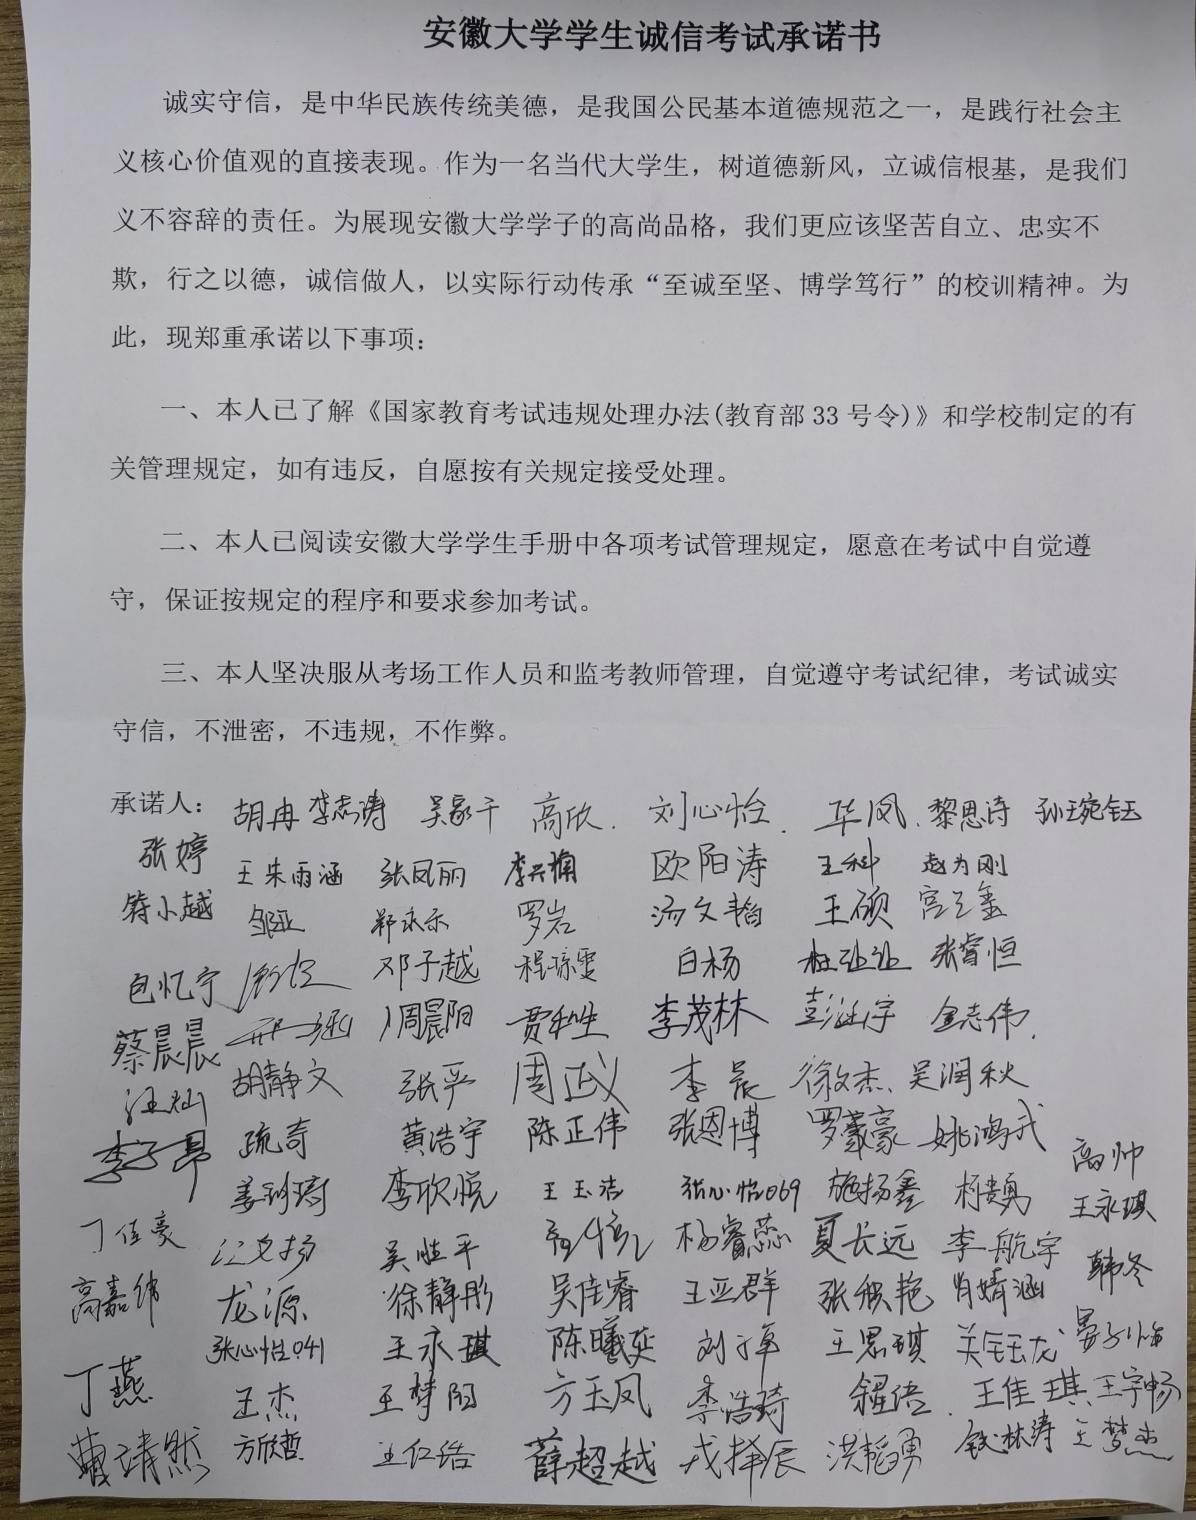 安徽大学学生诚信考试承诺书
诚实守信，是中华民族传统美德，是我国公民基本道德规范之一，是践行社会主
义核心价值观的直接表现。作为一名当代大学生，树道德新风，立诚信根基，是我们
义不容辞的责任。为展现安徽大学学子的高尚品格，我们更应该坚苦自立、忠实不
欺，行之以德，诚信做人，以实际行动传承“至诚至坚、博学笃行”的校训精神。为
此，现郑重承诺以下事项：
一、本人已了解《国家教育考试违规处理办法(教育部 33 号令)》和学校制定的有
关管理规定，如有违反，自愿按有关规定接受处理。
二、本人已阅读安徽大学学生手册中各项考试管理规定，愿意在考试中自觉遵
守，保证按规定的程序和要求参加考试。
三、本人坚决服从考场工作人员和监考教师管理，自觉遵守考试纪律，考试诚实
守信，不泄密，不违规，不作弊。
承诺人： 胡冉 李志涛 吴家干 高欣 刘心怡 华凤 黎思诗
张婷 王朱雨涵 张凤丽 李兴楠 欧阳涛 王科 赵为刚
符小越 邹亚 郑永乐 罗岩 汤文韬 王硕
包忆宁 邓子越 程琼雯 白杨 杜让让 张睿恒
蔡晨晨 周晨阳 贾利生 李茂林 金志伟
汪灿 胡静文 张严 周政 李晨 徐文杰 吴润秋
李子昂 疏奇 黄浩宇 陈正伟 张恩博 罗蒙豪 姚鸿武 高帅
李欣悦 王玉洁 张心怡069 施扬鑫 柯勇 王永琪
丁佳豪 江文扬 吴胜平 杨睿蕊 夏长远 李航宇 韩冬
高嘉伟 龙源 徐静彤 吴佳睿 王亚群 张积艳 肖婧涵
丁燕 张心怡041 王永琪 陈曦延 刘子军 王思琪 关钰龙 晏子怡
王杰 王梦阳 方玉凤 李浩琦 王佳琪 王宇畅
曹靖然 方欣哲 汪仁浩 薛超越 戎择辰 洪韬勇 钦林涛 王梦杰